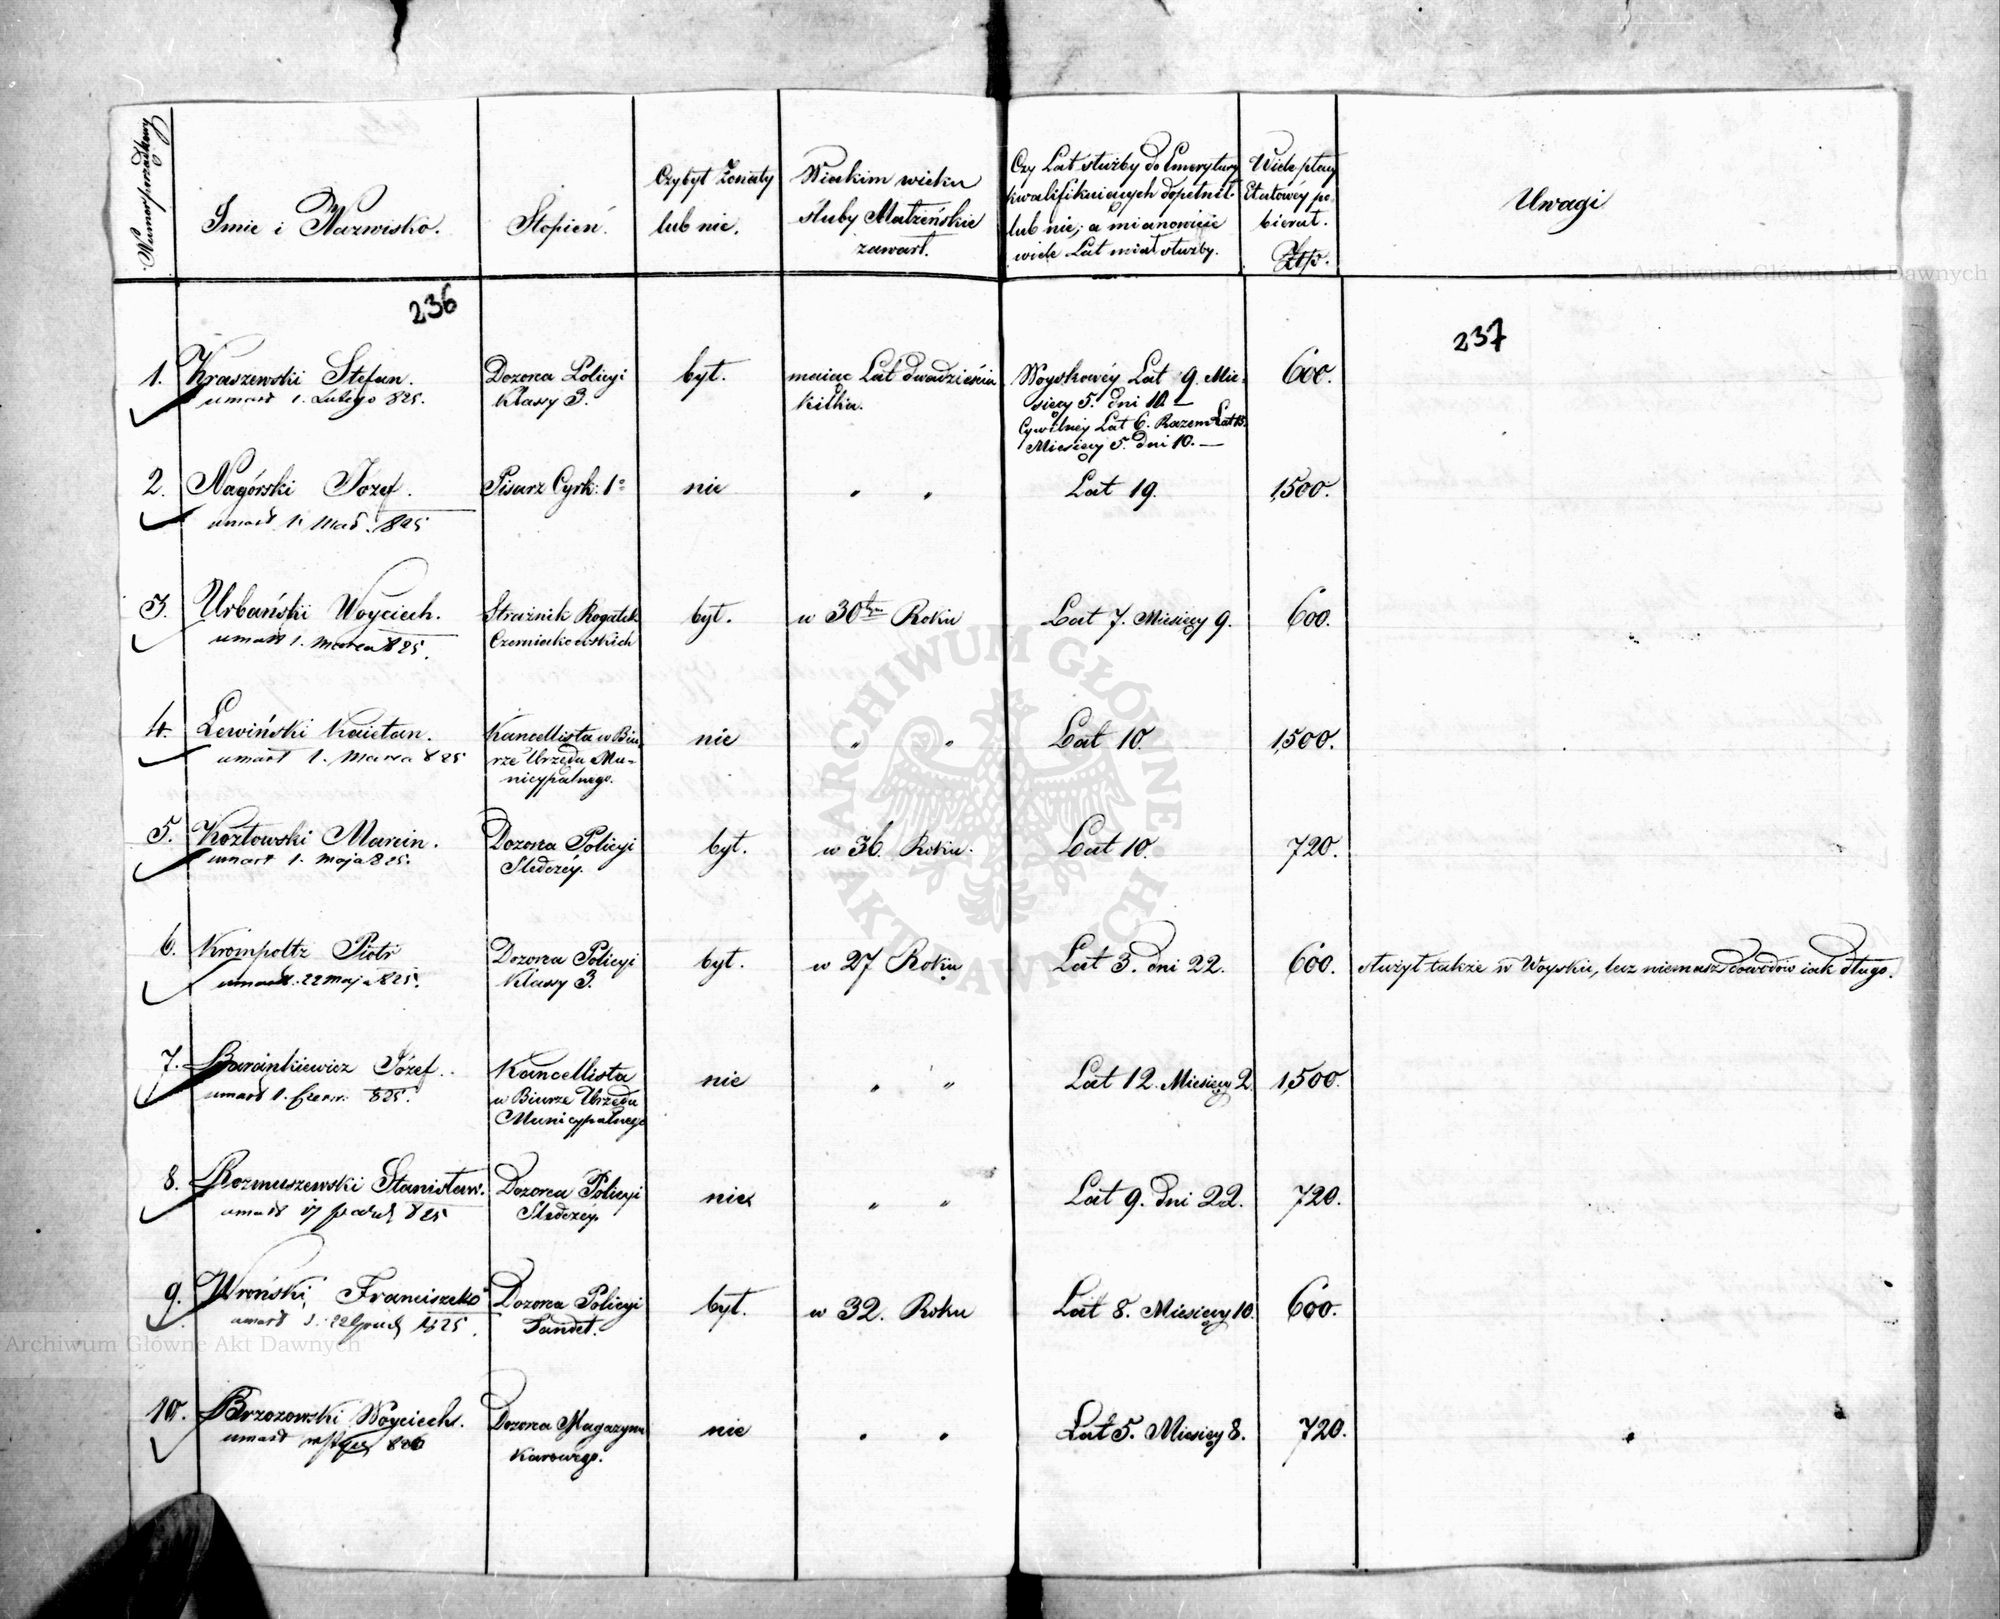 Numer porządkowy
Imie i Nazwisko.
Stopień.
Czy był Żonaty
lub nie.
W iakim wieku
śluby Małżeńskie
zawarł.
Czy Lat służby do Emerytury
kwalifikuiących dopełnił
lub nie; a mianowicie
wiele Lat miał służby.
Wiele płacy
Etatowéy po-
bierał.
Złp.
Uwagi
236
237
1. Kraszewski Stefan.
umarł 1. Lutego 825.
Dozorca Policyi
Klassy 3.
był.
maiąc Lat dwadzieścia
kilka.
Woyskowéy Lat 9. Mie-
sięcy 5. dni 10.—
Cywilnéy Lat 6. Razem Lat 15.
Miesięcy 5. dni 10.—
600.
2. Nagórski Józef.
umarł 1. 825
Pisarz Cyrk: 1º
nie
" "
Lat 19.
1,500.
3. Urbański Woyciech.
umarł 1. Marca 825.
Strażnik Rogatek
Czerniakowskich
był.
w 30tym Roku
Lat 7. Miesięcy 9.
600.
4. Lewiński Kaietan.
umarł 1. Marca 825
Kancellista w Biu-
rze Urzędu Mu-
nicypalnego.
nie
" "
Lat 10.
1,500.
5. Kozłowski Marcin.
umarł 1. Maja 825.
Dozorca Policyi
Sledczéy.
był.
w 36. Roku.
Lat 10.
720.
6. Krompoltz Piotr
umarł. 22 Maja 825.
Dozorca Policyi
Klassy 3.
był.
w 27 Roku
Lat 3. dni 22.
600.
służył także w Woysku, lecz niemasz dowodów iak długo.
7. Barankiewicz Józef.
umarł 1. Czerw. 825.
Kancellista
w Biurze Urzędu
Municypalnego
nie
" "
Lat 12. Miesięcy 2
1,500.
8. Rozmuszewski Stanisław.
umarł 825
Dozorca Policyi
Sledczéy.
nie
" "
Lat 9. dni 22.
720.
9. Wroński Franciszek
umarł 825.
Dozorca Policyi
Tandet.
był.
w 32. Roku
Lat 8. Miesięcy 10.
600.
10. Brzozowski Woyciech.
umarł 826
Dozorca Magazynu
Karowego.
nie
" "
Lat 5. Miesięcy 8.
720.
ARCHIWUM GŁÓWNE AKT DAWNYCH
Archiwum Główne Akt Dawnych
Archiwum Główne Akt Dawnych